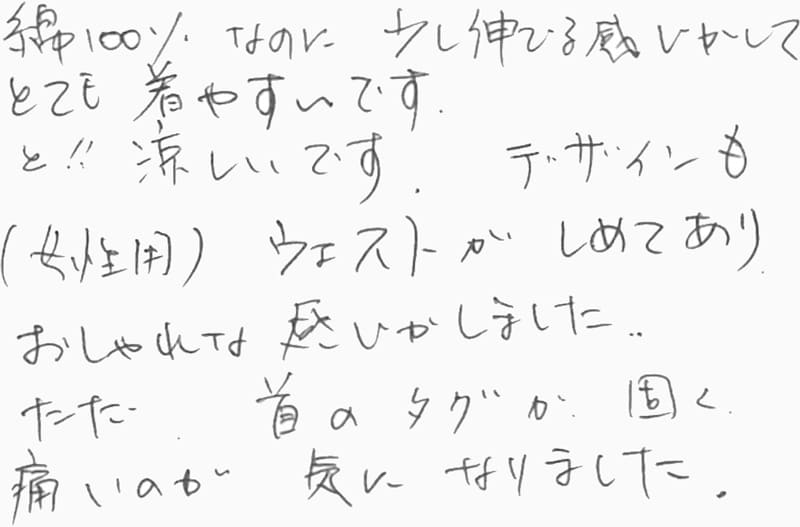 綿100% なのに 少し伸びる感じがして
とても 着やすいです.
と!! 涼しいです. デザインも
(女性用) ウェストが しめてあり
おしゃれな 感じがしました..
ただ. 首のタグが 固く
痛いのが 気になりました.